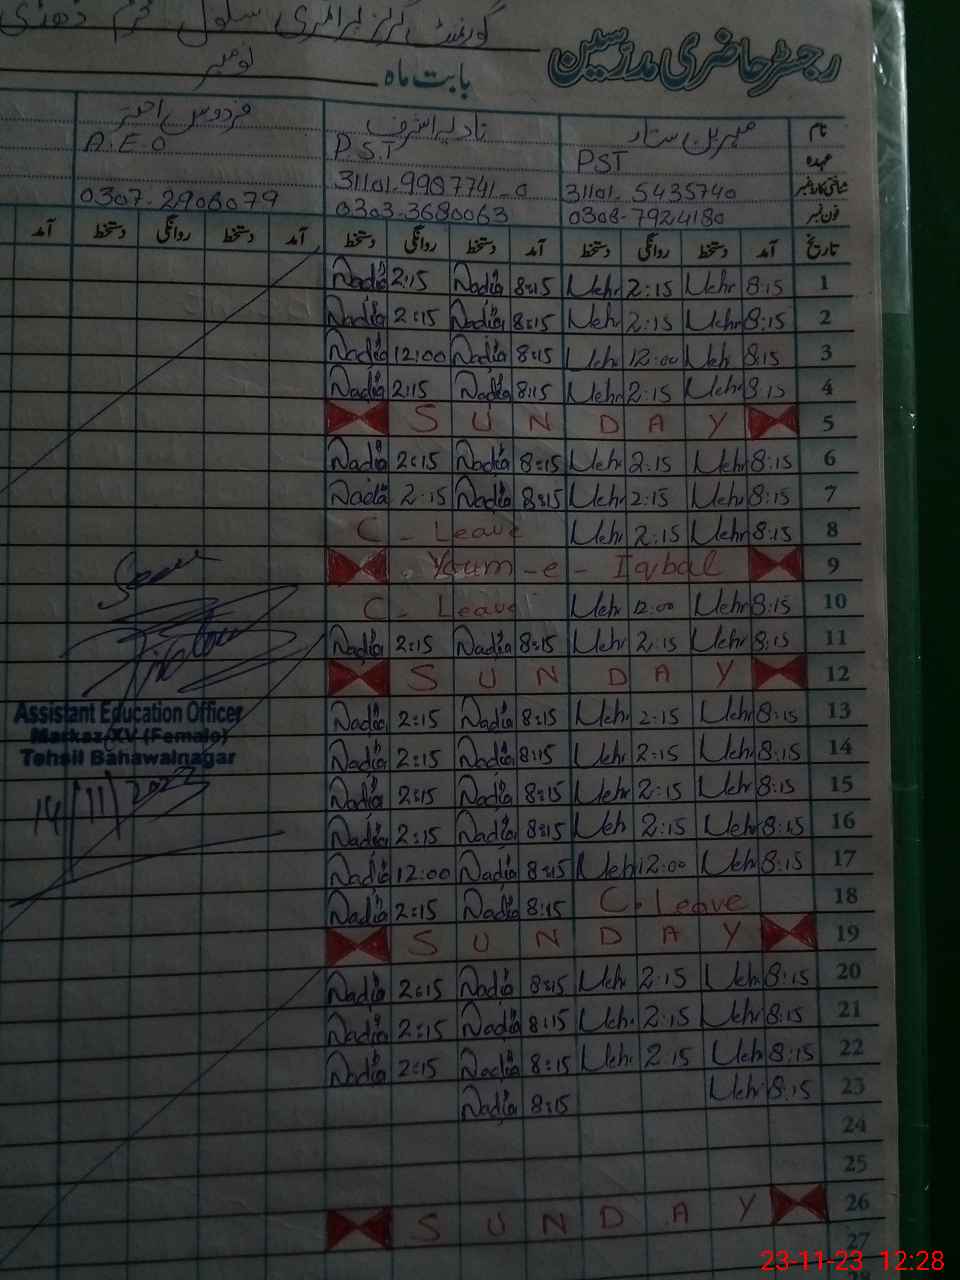 گورنمنٹ گرلز پرائمری سکول
رجسٹر حاضری مدرسین
بابت ماہ نومبر
نام مہرین ستار نادیہ اشرف فردوس
عہدہ PST P.S.T A.E.O
شناختی کارڈ نمبر 31101-5435740 31101-9987741-0
فون نمبر 0308-7924180 0303-3680063 0307-2908079
تاریخ آمد دستخط روانگی دستخط آمد دستخط روانگی دستخط آمد دستخط روانگی دستخط آمد
Nadia 2:15 Nadia 8:15 Mehr 2:15 Mehr 8:15 1
Nadia 2:15 Nadia 8:15 Mehr 2:15 Mehr 8:15 2
Nadia 12:00 Nadia 8:15 Mehr 12:00 Mehr 8:15 3
Nadia 2:15 Nadia 8:15 Mehr 2:15 Mehr 8:15 4
S U N D A Y 5
Nadia 2:15 Nadia 8:15 Mehr 2:15 Mehr 8:15 6
Nadia 2:15 Nadia 8:15 Mehr 2:15 Mehr 8:15 7
C - Leave Mehr 2:15 Mehr 8:15 8
Youm - e - Iqbal 9
C - Leave Mehr 12:00 Mehr 8:15 10
Nadia 2:15 Nadia 8:15 Mehr 2:15 Mehr 8:15 11
S U N D A Y 12
Nadia 2:15 Nadia 8:15 Mehr 2:15 Mehr 8:15 13
Nadia 2:15 Nadia 8:15 Mehr 2:15 Mehr 8:15 14
Nadia 2:15 Nadia 8:15 Mehr 2:15 Mehr 8:15 15
Nadia 2:15 Nadia 8:15 Meh 2:15 Mehr 8:15 16
Nadia 12:00 Nadia 8:15 Mehr 12:00 Mehr 8:15 17
Nadia 2:15 Nadia 8:15 C. Leave 18
S U N D A Y 19
Nadia 2:15 Nadia 8:15 Mehr 2:15 Mehr 8:15 20
Nadia 2:15 Nadia 8:15 Mehr 2:15 Mehr 8:15 21
Nadia 2:15 Nadia 8:15 Mehr 2:15 Mehr 8:15 22
Nadia 8:15 Mehr 8:15 23
24
25
S U N D A Y 26
27
Seen
Assistant Education Officer
Markaz XV (Female)
Tehsil Bahawalnagar
14/11/2023
23-11-23 12:28